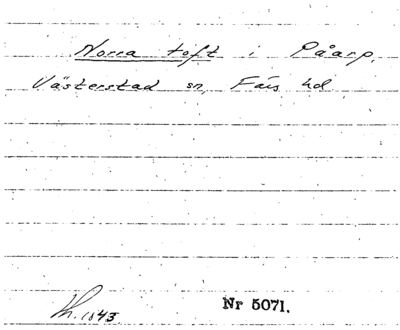 Norra toft i Påarp,
Västerstad sn, Färs hd
Th. 1843
Nr 5071.